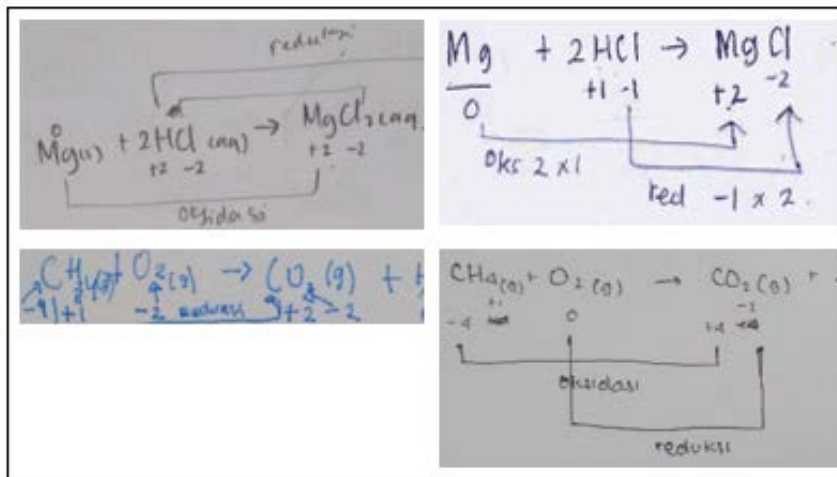 reduksi
0
Mg(s) + 2HCl (aq) → MgCl2 (aq)
+2 -2 +2 -2
oksidasi
Mg + 2HCl → MgCl
0 +1 -1 +2 -2
oks 2 x 1
red -1 x 2
CH4(g) + O2(g) → CO2(g) +
+1 -2 reduksi +2 -2
CH4(g) + O2(g) → CO2(g) +
-4 +1 0 +4
oksidasi
reduksi